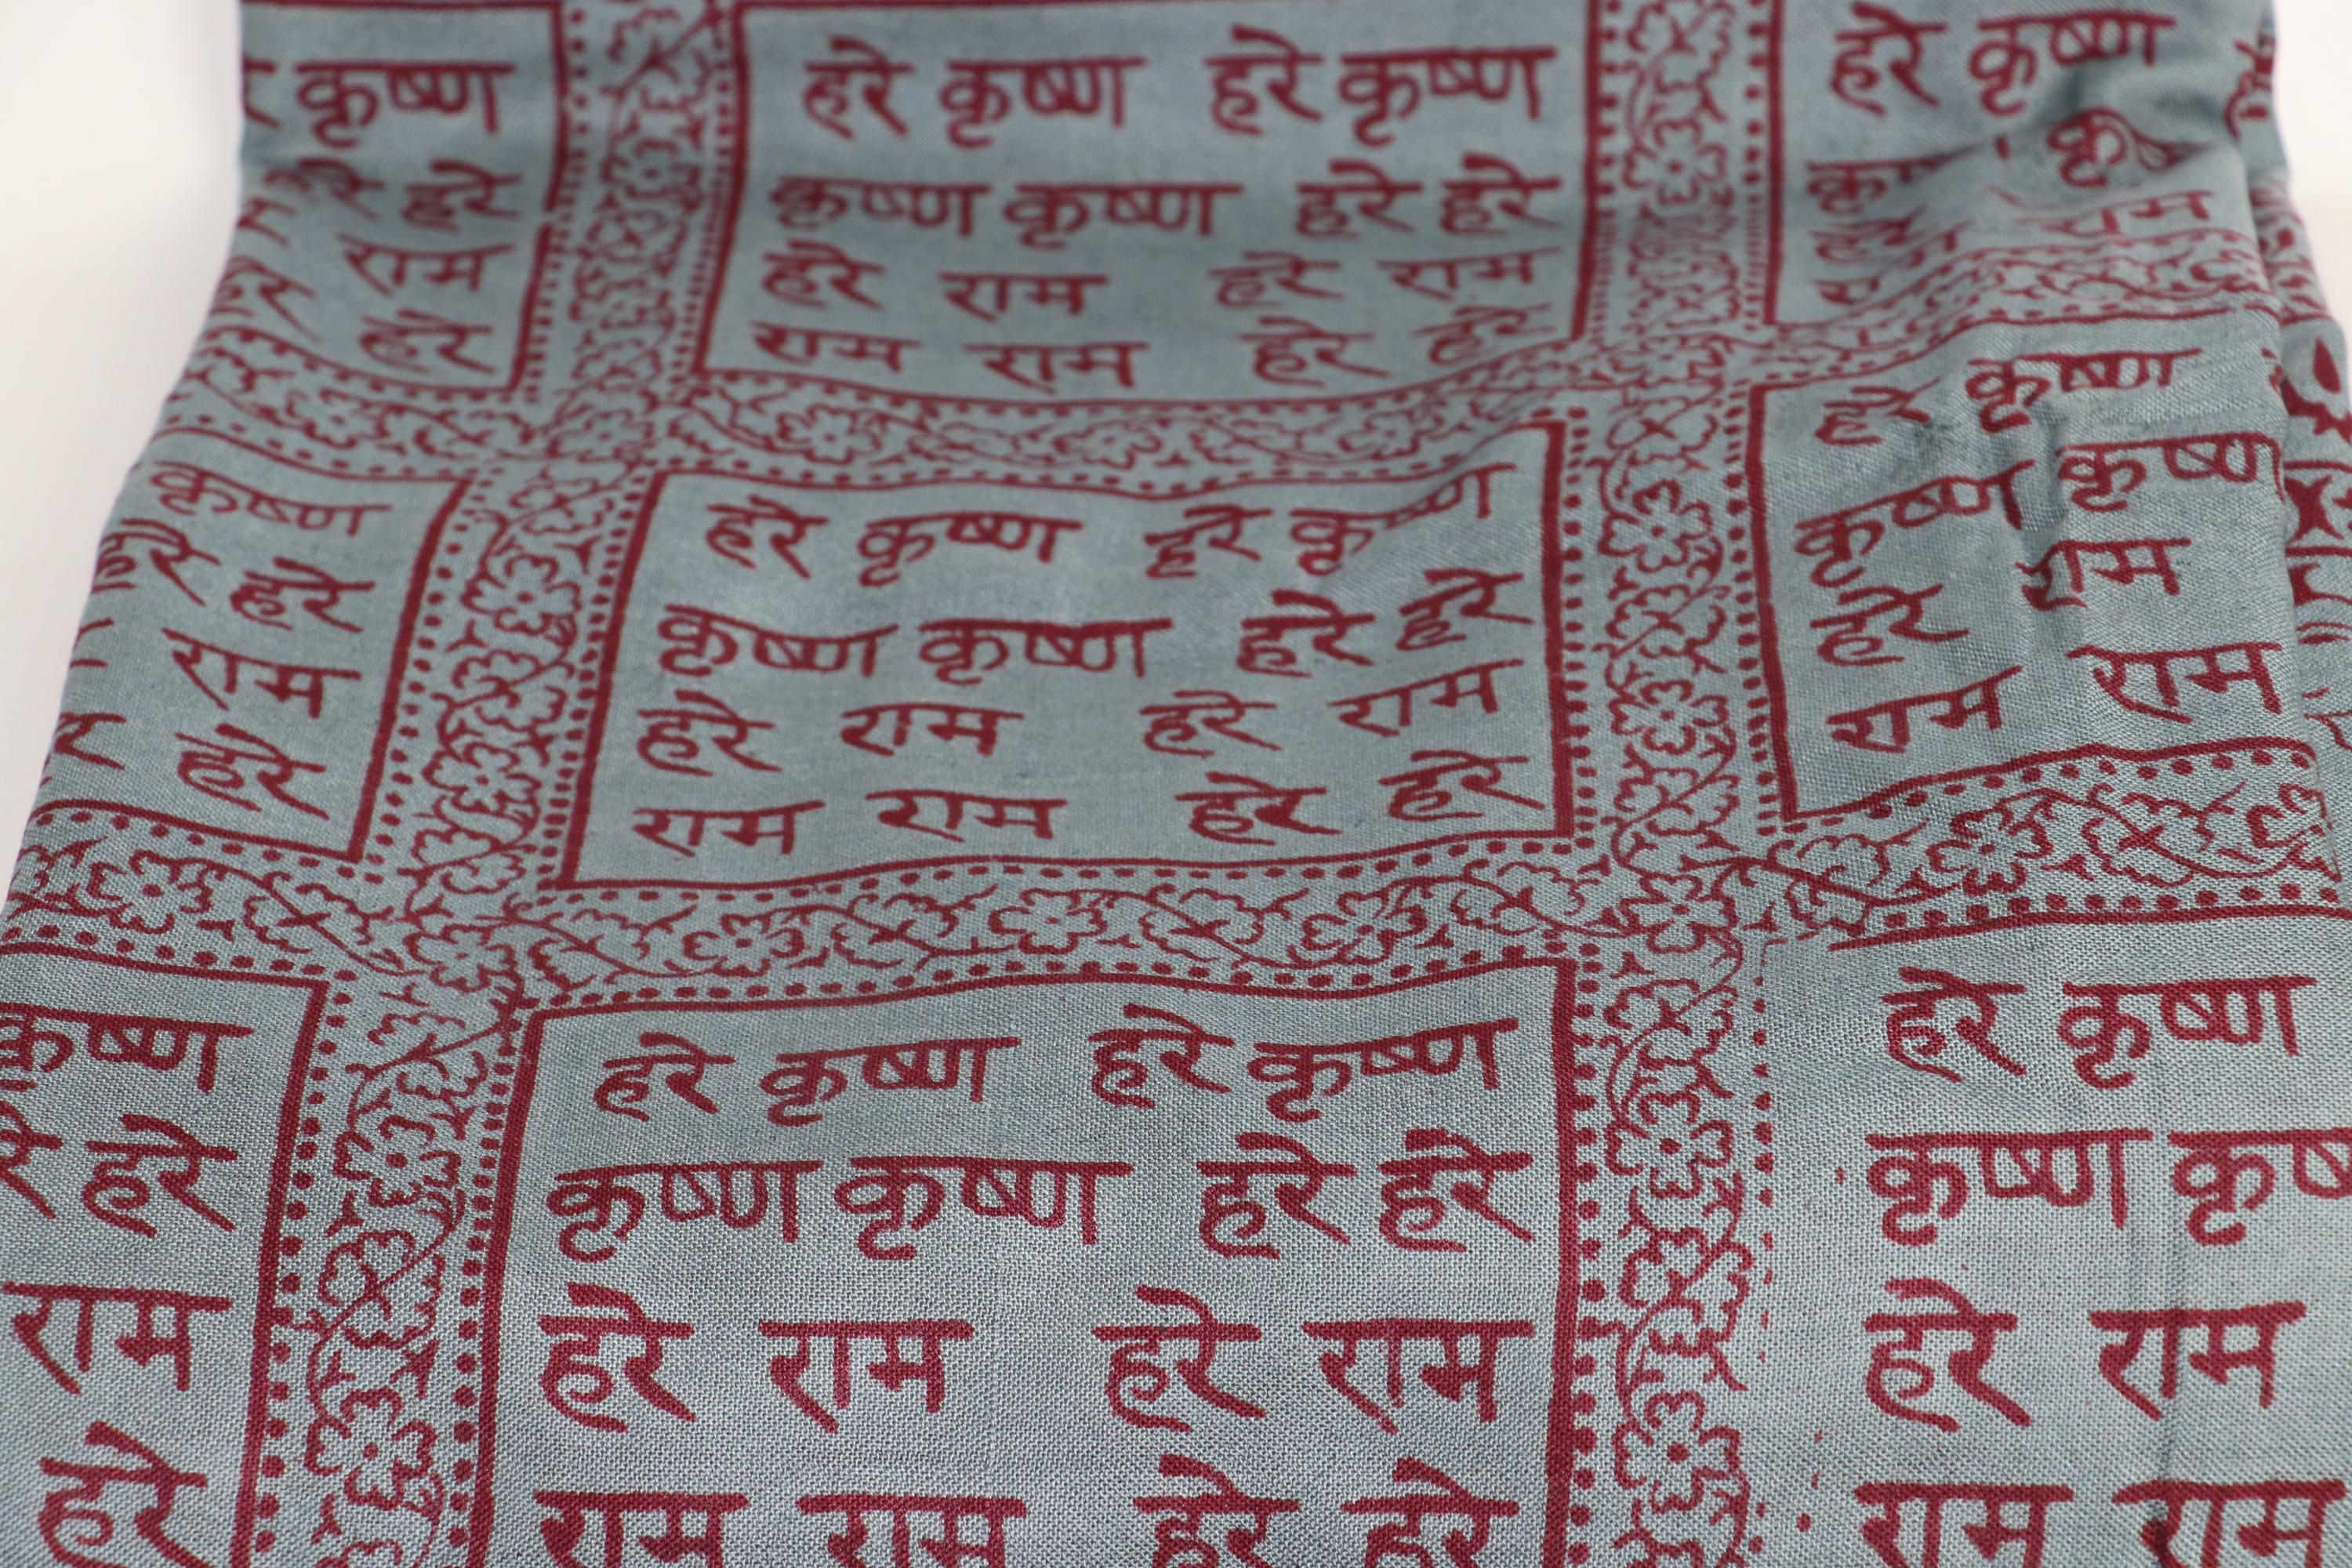 कृष्ण
हरे
राम
हरे
हरे कृष्ण हरे कृष्ण
कृष्ण कृष्ण हरे हरे
हरे राम हरे राम
राम राम हरे हरे
हरे कृष्ण
राम
कृष्ण
हरे हरे
राम
हरे
हरे कृष्ण हरे कृष्ण
कृष्ण कृष्ण हरे हरे
हरे राम हरे राम
राम राम हरे हरे
हरे कृष्ण
कृष्ण कृष्ण
हरे राम
राम राम
कृष्ण
हरे
राम
हरे
हरे कृष्ण हरे कृष्ण
कृष्ण कृष्ण हरे हरे
हरे राम हरे राम
राम राम हरे हरे
हरे कृष्ण
कृष्ण
हरे राम
राम राम